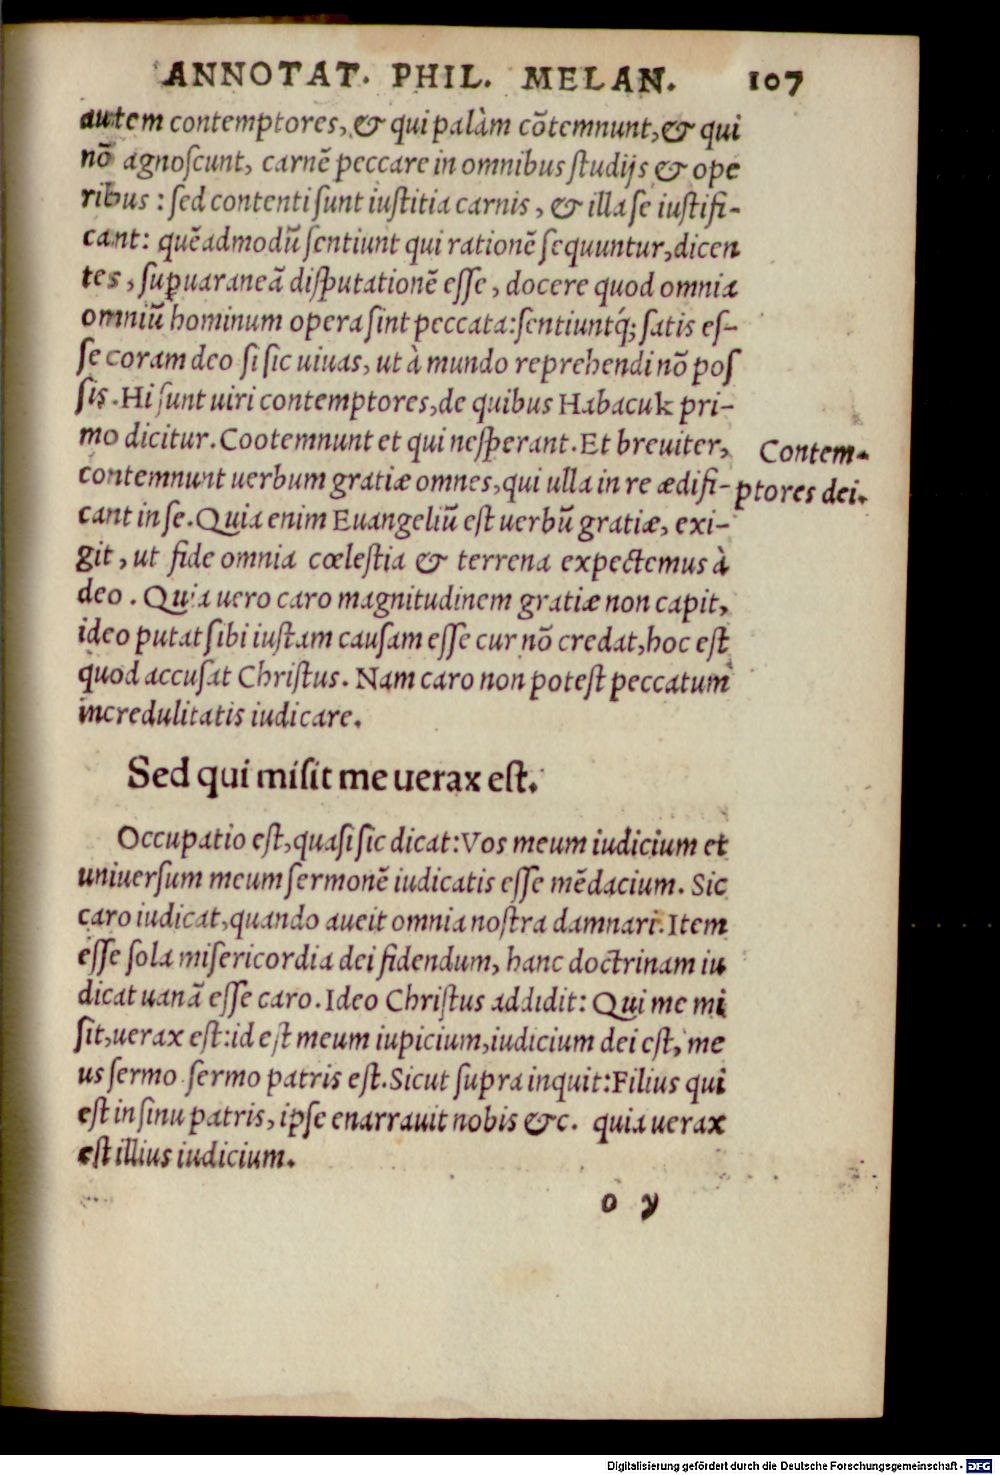 ANNOTAT. PHIL. MELAN. 107
autem contemptores, & qui palàm cõtemnunt, & qui
nõ agnoſcunt, carnẽ peccare in omnibus ſtudijs & ope
ribus : ſed contenti ſunt iuſtitia carnis, & illa ſe iuſtifi-
cant: quẽadmodũ ſentiunt qui rationẽ ſequuntur, dicen
tes, ſupuaraneã diſputationẽ eſſe, docere quod omnia
omniũ hominum opera ſint peccata: ſentiuntq́; ſatis eſ-
ſe coram deo ſi ſic uiuas, ut à mundo reprehendi nõ poſ
ſis. Hi ſunt uiri contemptores, de quibus Habacuk pri-
mo dicitur. Cootemnunt et qui neſperant. Et breuiter,
contemnunt uerbum gratiæ omnes, qui ulla in re ædifi-
Contem-
ptores dei.
cant in ſe. Quia enim Euangeliũ eſt uerbũ gratiæ, exi-
git, ut fide omnia cœleſtia & terrena expectemus à
deo. Quia uero caro magnitudinem gratiæ non capit,
ideo putat ſibi iuſtam cauſam eſſe cur nõ credat, hoc eſt
quod accuſat Chriſtus. Nam caro non poteſt peccatum
incredulitatis iudicare.
Sed qui miſit me uerax eſt.
Occupatio eſt, quaſi ſic dicat: Vos meum iudicium et
uniuerſum meum ſermonẽ iudicatis eſſe mẽdacium. Sic
caro iudicat, quando aueit omnia noſtra damnari. Item
eſſe ſola miſericordia dei fidendum, hanc doctrinam iu
dicat uanã eſſe caro. Ideo Chriſtus addidit: Qui me mi
ſit, uerax eſt: id eſt meum iupicium, iudicium dei eſt, me
us ſermo ſermo patris eſt. Sicut ſupra inquit: Filius qui
eſt in ſinu patris, ipſe enarrauit nobis &c. quia uerax
eſt illius iudicium.
o y
Digitalisierung gefördert durch die Deutsche Forschungsgemeinschaft - DFG